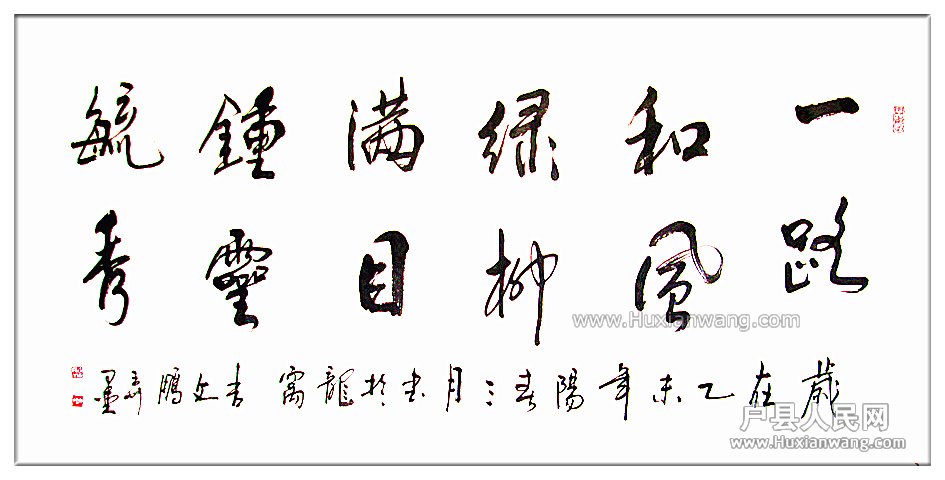 一路
和風
绿柳
满目
鍾靈
毓秀
歲在乙未年陽春三月书於龍窩 吉文鵬弄墨
www.Huxianwang.com
户县人民网
www.Huxianwang.com